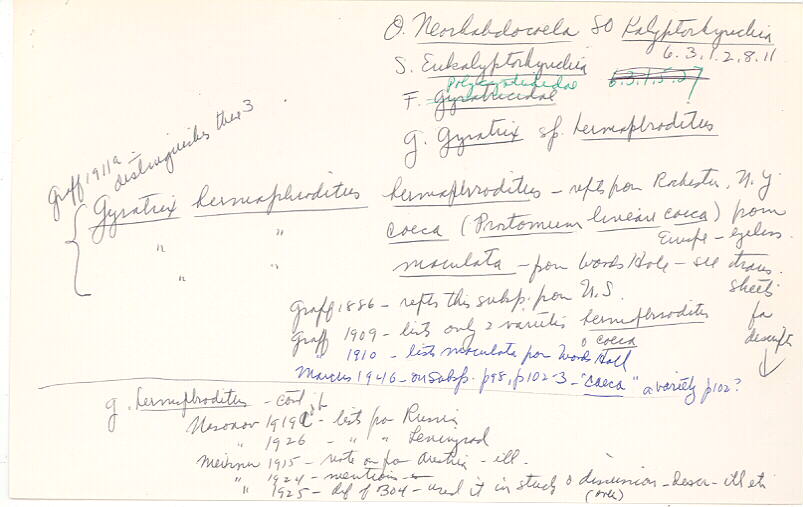 O. Neorhabdocoela SO Kalyptorhynchia
6.3.1.2.8.11
S. Eukalyptorhynchia
Polycystididae 6.3.1.5.27
F. Gyratricidae
g. Gyratrix sp. hermaphroditus
Graff 1911a - distinguishes these 3
Gyratrix hermaphroditus hermaphroditus - repts from Rochester, N.Y.
" " coeca (Prostomum lineare coeca) from Europe - eyeless
" " maculata - from Woods Hole - see trans. sheets for descript
Graff 1886 - repts this subsp. from U.S.
Graff 1909 - lists only 2 varieties hermaphroditus & coeca
" 1910 - lists maculata from Woods Hall
Marcus 1946 - on subsp. p98, p102-3 - "coeca" a variety p102?
g. hermaphroditus - cont'd
Nasonov 1919 - lists for Russia
" 1926 - " " Leningrad
Meixner 1915 - note on for Austria - ill.
" 1924 - mention
" 1925 - def of B04 - used it in study & discussion - descr - ill etc
(over)